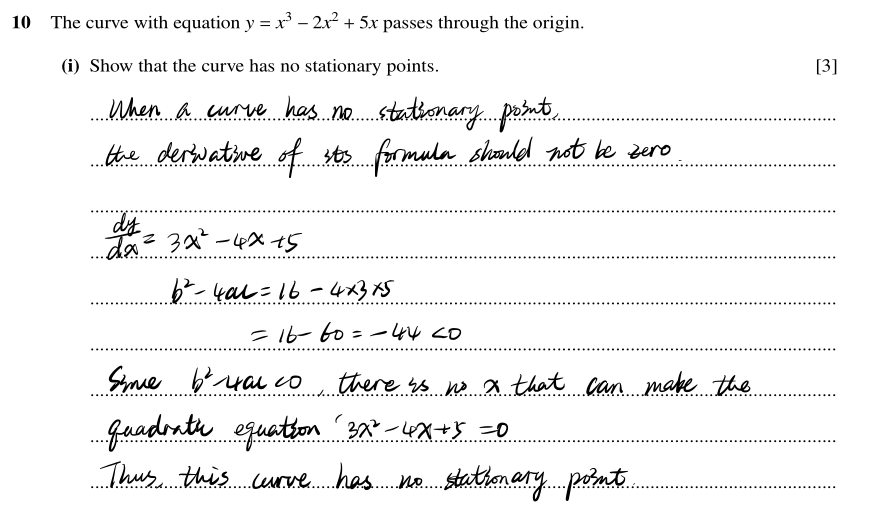 10 The curve with equation y = x³ – 2x² + 5x passes through the origin.
(i) Show that the curve has no stationary points. [3]
When a curve has no stationary point,
the derivative of its formula should not be zero.
dy/dx = 3x² - 4x + 5
b² - 4ac = 16 - 4×3×5
= 16 - 60 = -44 < 0
Since b²-4ac < 0, there is no x that can make the
quadratic equation '3x² - 4x + 5 = 0
Thus, this curve has no stationary point.